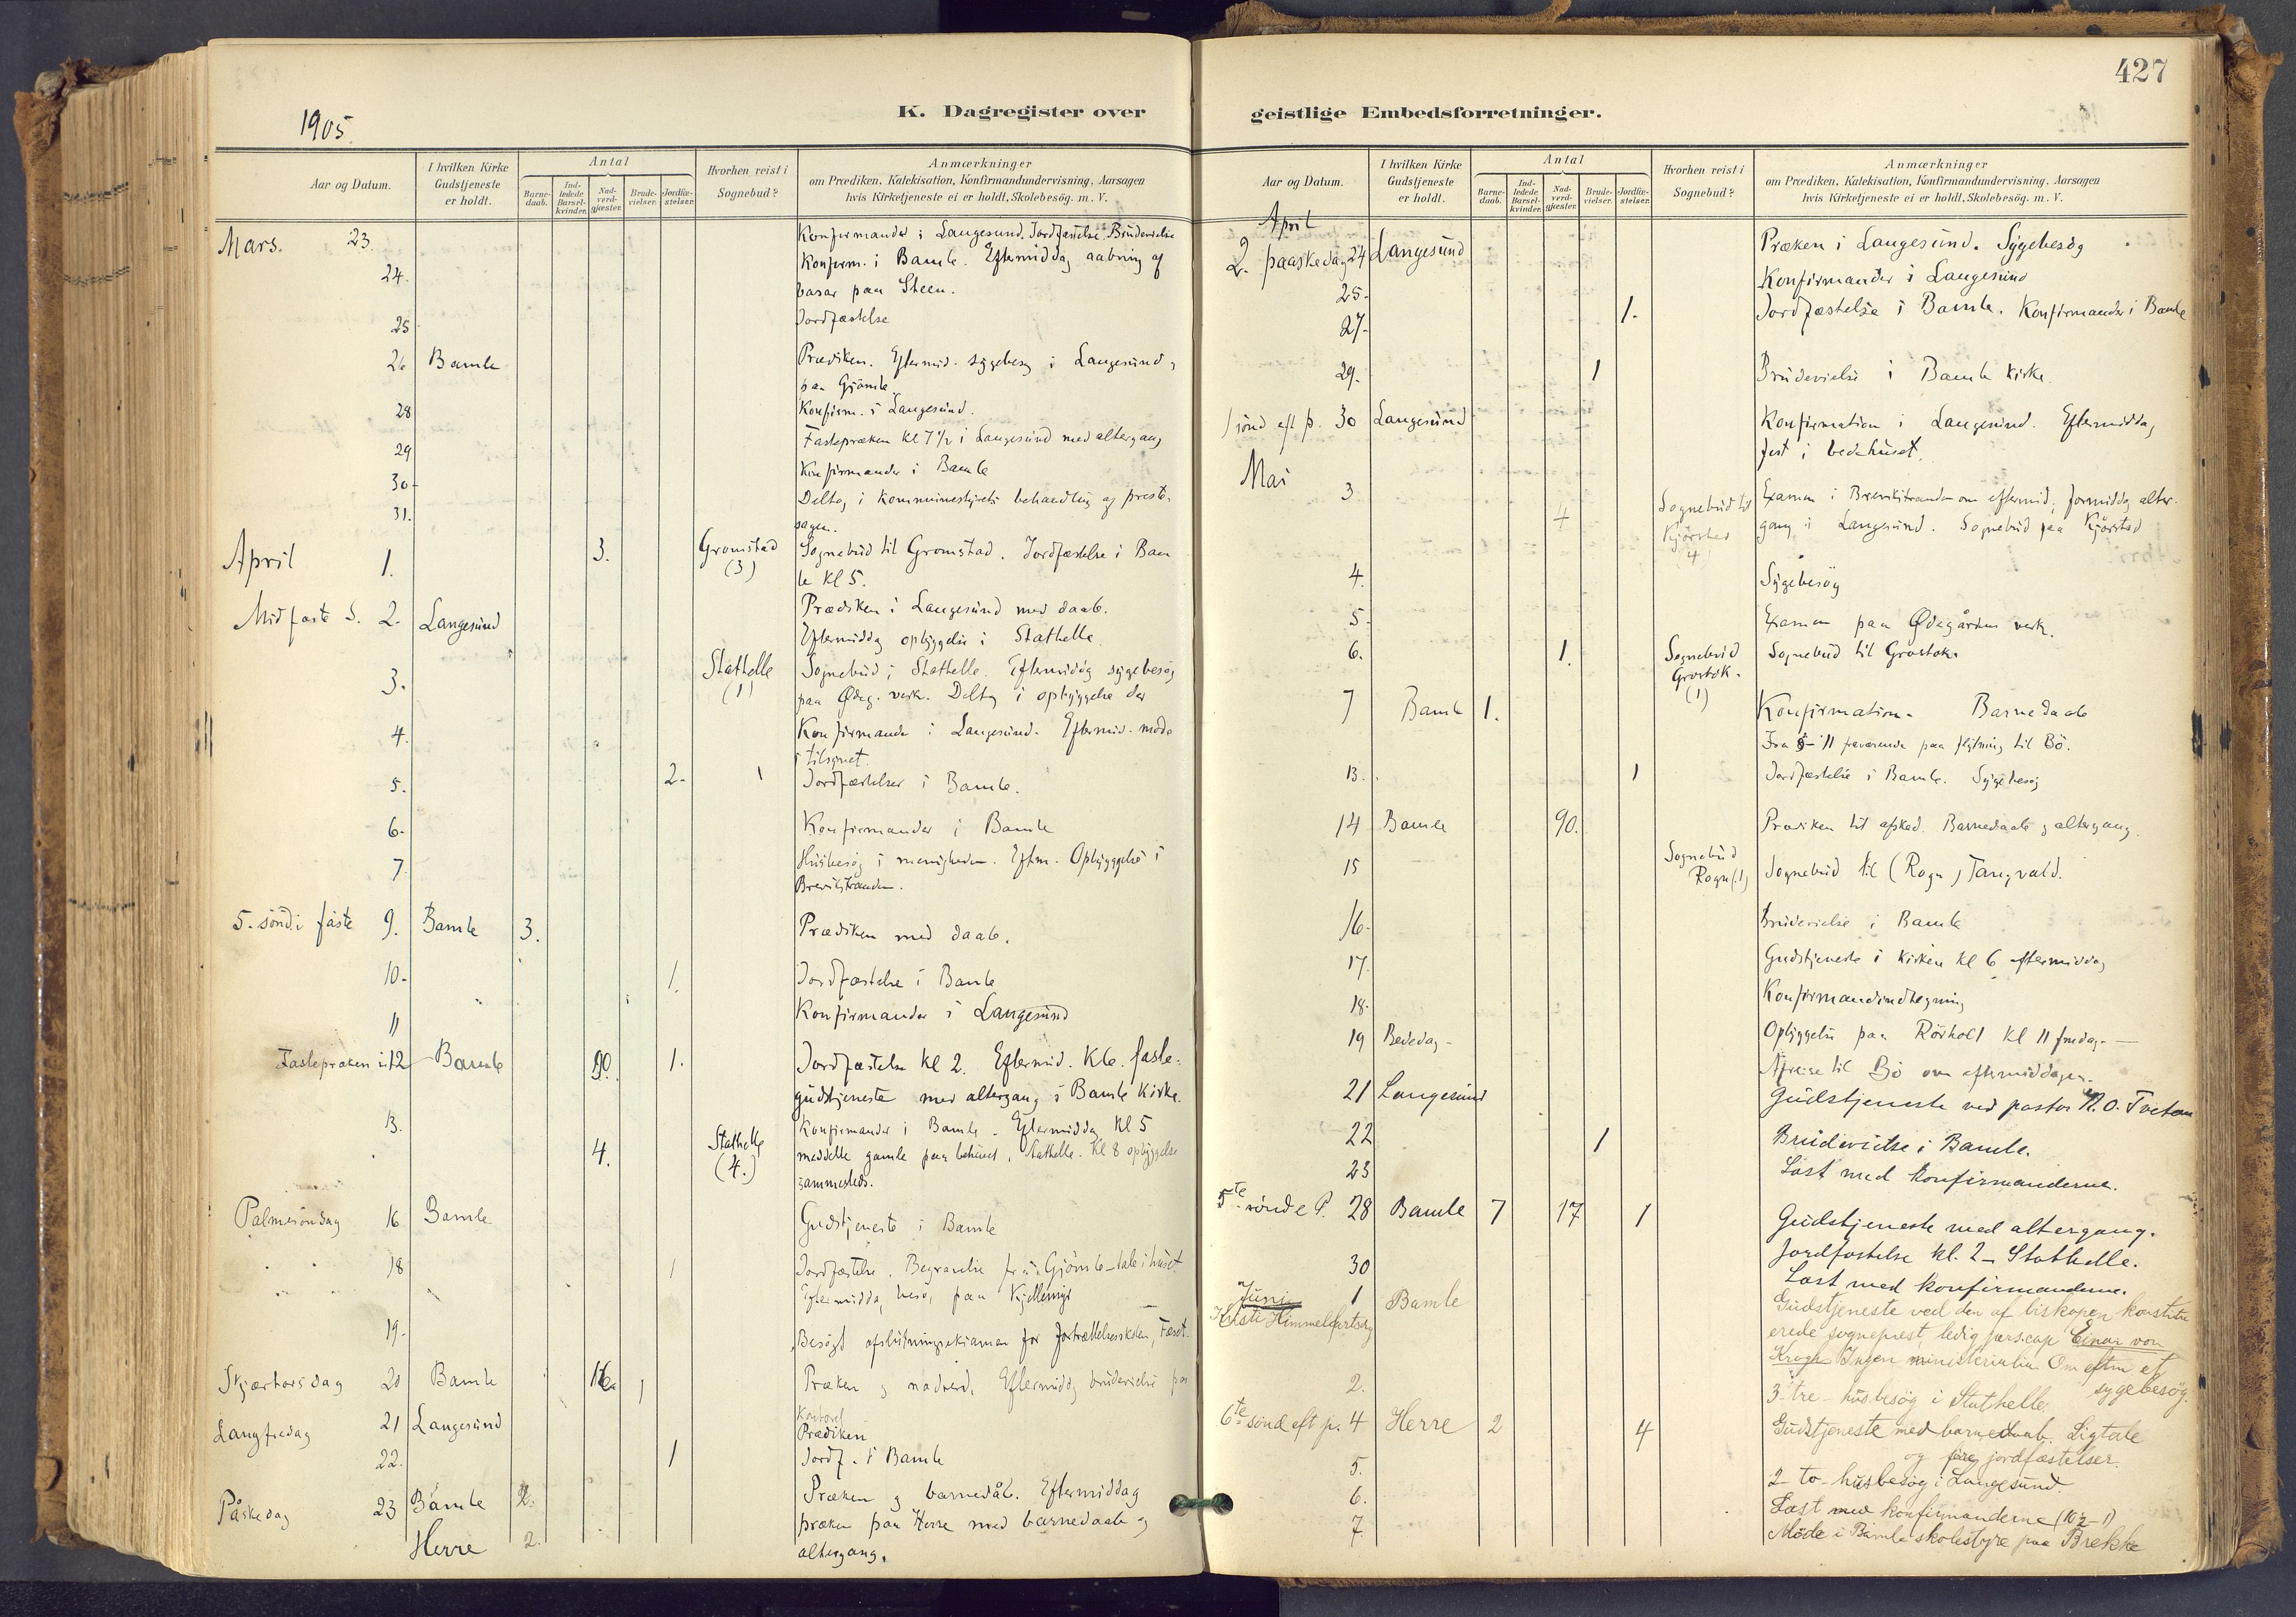 427
1905.
K. Dagregister over geistlige Embedsforretninger.
Aar og Datum.
I hvilken Kirke Gudstjeneste er holdt.
Antal
Barne-daab.
Ind-ledede Barsel-kvinder.
Nad-verd-gjæster.
Brude-vielser.
Jordfæ-stelser.
Hvorhen reist i Sognebud?
Anmærkninger
om Prædiken, Katekisation, Konfirmandundervisning, Aarsagen
hvis Kirketjeneste ei er holdt, Skolebesög. m. V.
Mars. 23. Konfirmander i Langesund. Jordfæstelse. Brudevielse
24. Konfirm. i Bamle. Eftermiddag aabning af
basar paa Steen.
25 Jordfæstelse
26 Bamle Prædiken. Eftermid. sygebesøg i Langesund,
paa Gjömle.
28 Konfirm. i Langesund.
29 Fastepræken kl 7 1/2 i Langesund med altergang
30- Konfirmander i Bamle
31. Deltog i kommunestyrets behandling af preste-
sagen.
April 1. 3. Gromstad Sognebud til Gromstad. Jordfæstelse i Bam
(3) le kl 5.
Midfaste S. 2. Langesund Prædiken i Langesund med daab.
Eftermiddag opbyggelse i Stathelle.
3. Stathelle Sognebud i Stathelle. Eftermiddag sygebesøg
(1) paa Ødeg. verk. Deltog i opbyggelse der
4. Konfirmander i Langesund. Eftermid. møde
i tilsynet.
5. 2- Jordfæstelser i Bamle.
6- Konfirmander i Bamle
7. Husbesøg i menigheden. Eftm. Opbyggelse i
Brevikstranden.
5. sönd. i faste 9. Bamle 3. Prædiken med daab.
10- 1. Jordfæstelse i Bamle
11 Konfirmander i Langesund
Fastepræken i 12 Bamle 90. 1. Jordfæstelse kl 2. Eftermid. Kl 6. faste-
gudstjeneste med altergang i Bamle Kirke.
13. Konfirmander i Bamle. Eftermiddag kl 5
4. Stathelle meddelte gamle paa . Stathelle. Kl 8 opbyggelse
(4.) sammesteds.
Palmesöndag 16 Bamle Gudstjeneste i Bamle
18 1 Jordfæstelse. Begravelse fra Gjömle - tale i huset
Eftermiddag besøg paa Kjellemyr
19- Besögt afslutningseksamen for fortsættelsesskolen, Fæset.
Skjærtorsdag 20 Bamle 16. 1 Præken og nadverd. Eftermiddag brudevielse paa
Kontoret
Langfredag 21 Langesund Prædiken
22. 1 Jordf. i Bamle
Påskedag 23 Bamle 2. Præken og barnedåb. Eftermiddag
præken paa Herre med barnedaab og
Herre 2. altergang.
Aar og Datum.
I hvilken Kirke Gudstjeneste er holdt.
Antal
Barne-daab.
Ind-ledede Barsel-kvinder.
Nad-verd-gjæster.
Brude-vielser.
Jordfæ-stelser.
Hvorhen reist i Sognebud?
Anmærkninger
om Prædiken, Katekisation, Konfirmandundervisning, Aarsagen
hvis Kirketjeneste ei er holdt, Skolebesög. m. V.
April
2. paaskedag 24 Langesund Præken i Langesund. Sygebesøg
25- Konfirmander i Langesund
27- 1. Jordfæstelse i Bamle. Konfirmander i Bamle
29- 1 Brudevielse i Bamle Kirke.
1 sönd eft p. 30 Langesund Konfirmation i Langesund. Eftermiddag
fest i bedehuset.
Mai 3 4 Sognebud til Kjörstad (4) Examen i Brevikstranden om eftermid; formiddag alter-
gang i Langesund. Sognebud paa Kjörstad
4. Sygebesøg
5- Examen paa Ødegårdens verk.
6. 1. Sognebud Grostok. (1) Sognebud til Grostok.
7 Bamle 1. Konfirmation. Barnedaab
Fra 8-11 fraværende paa flytning til Bö.
13. 1 Jordfæstelse i Bamle. Sygebesøg
14 Bamle 90. Prædiken til afsked. Barnedaab og altergang.
15 Sognebud Rogn(1) Sognebud til (Rogn) Tangvald.
16- Brudevielse i Bamle
17. Gudstjeneste i kirken kl 6 eftermiddag
18- Konfirmandindtegning
19 Bededag- Opbyggelse paa Rörholt kl 11 fredag. —
Afreise til Bö om eftermiddagen.
21 Langesund Gudstjeneste ved pastor N. O. Tvetan
22 1 Brudevielse i Bamle.
23 Læst med konfirmanderne.
5te sönd e P. 28 Bamle 7 17 1 Gudstjeneste med altergang.
Jordfæstelse kl. 2 - Stathelle.
30 Læst med konfirmanderne.
Juni 1 Bamle Gudstjeneste ved den af biskopen konstitu
Kristi Himmelfartsdag erede sogneprest, ledig perscap Einar von
Krogh Ingen ministerialia Om eftm et
2. sygebesög.
3- tre - husbesög i Stathelle
6te sönd eft p. 4 Herre 2 4 Gudstjeneste med barnedaab. Ligtale
og fire jordfæstelser.
5. 2 to- husbesög i Langesund
6. Læst med konfirmanderne (10½-1)
7. Möde i Bamle skolestyre paa Brekke